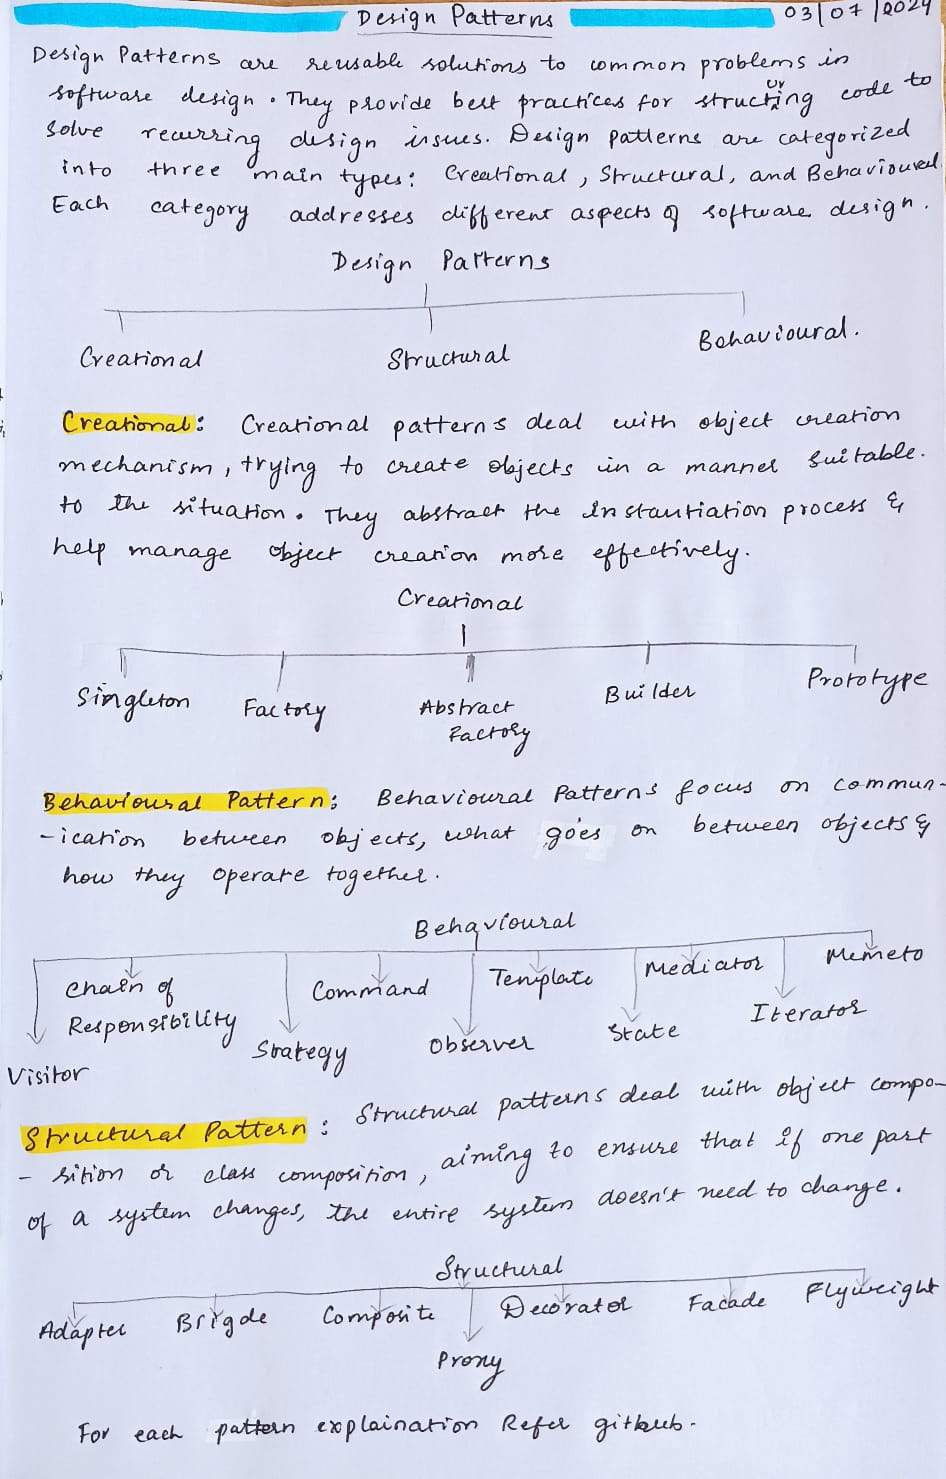 Design Patterns
03/07/2024
Design Patterns are reusable solutions to common problems in
software design. They provide best practices for structuring code to
solve recurring design issues. Design patterns are categorized
into three main types: Creational, Structural, and Behavioural
Each category addresses different aspects of software design.
Design Patterns
Creational Structural Behavioural.
Creational: Creational patterns deal with object creation
mechanism, trying to create objects in a manner suitable.
to the situation. They abstract the instantiation process &
help manage object creation more effectively.
Creational
Singleton Factory Abstract Factory Builder Prototype
Behavioural Pattern: Behavioural Patterns focus on commun-
-ication between objects, what goes on between objects &
how they operate together.
Behavioural
Chain of Command Template Mediator Memeto
Responsibility Strategy Observer State Iterator
Visitor
Structural Pattern: Structural patterns deal with object compo-
-sition or class composition, aiming to ensure that if one part
of a system changes, the entire system doesn't need to change.
Structural
Adapter Brigde Composite Decorator Facade Flyweight
Proxy
For each pattern explaination Refer github.